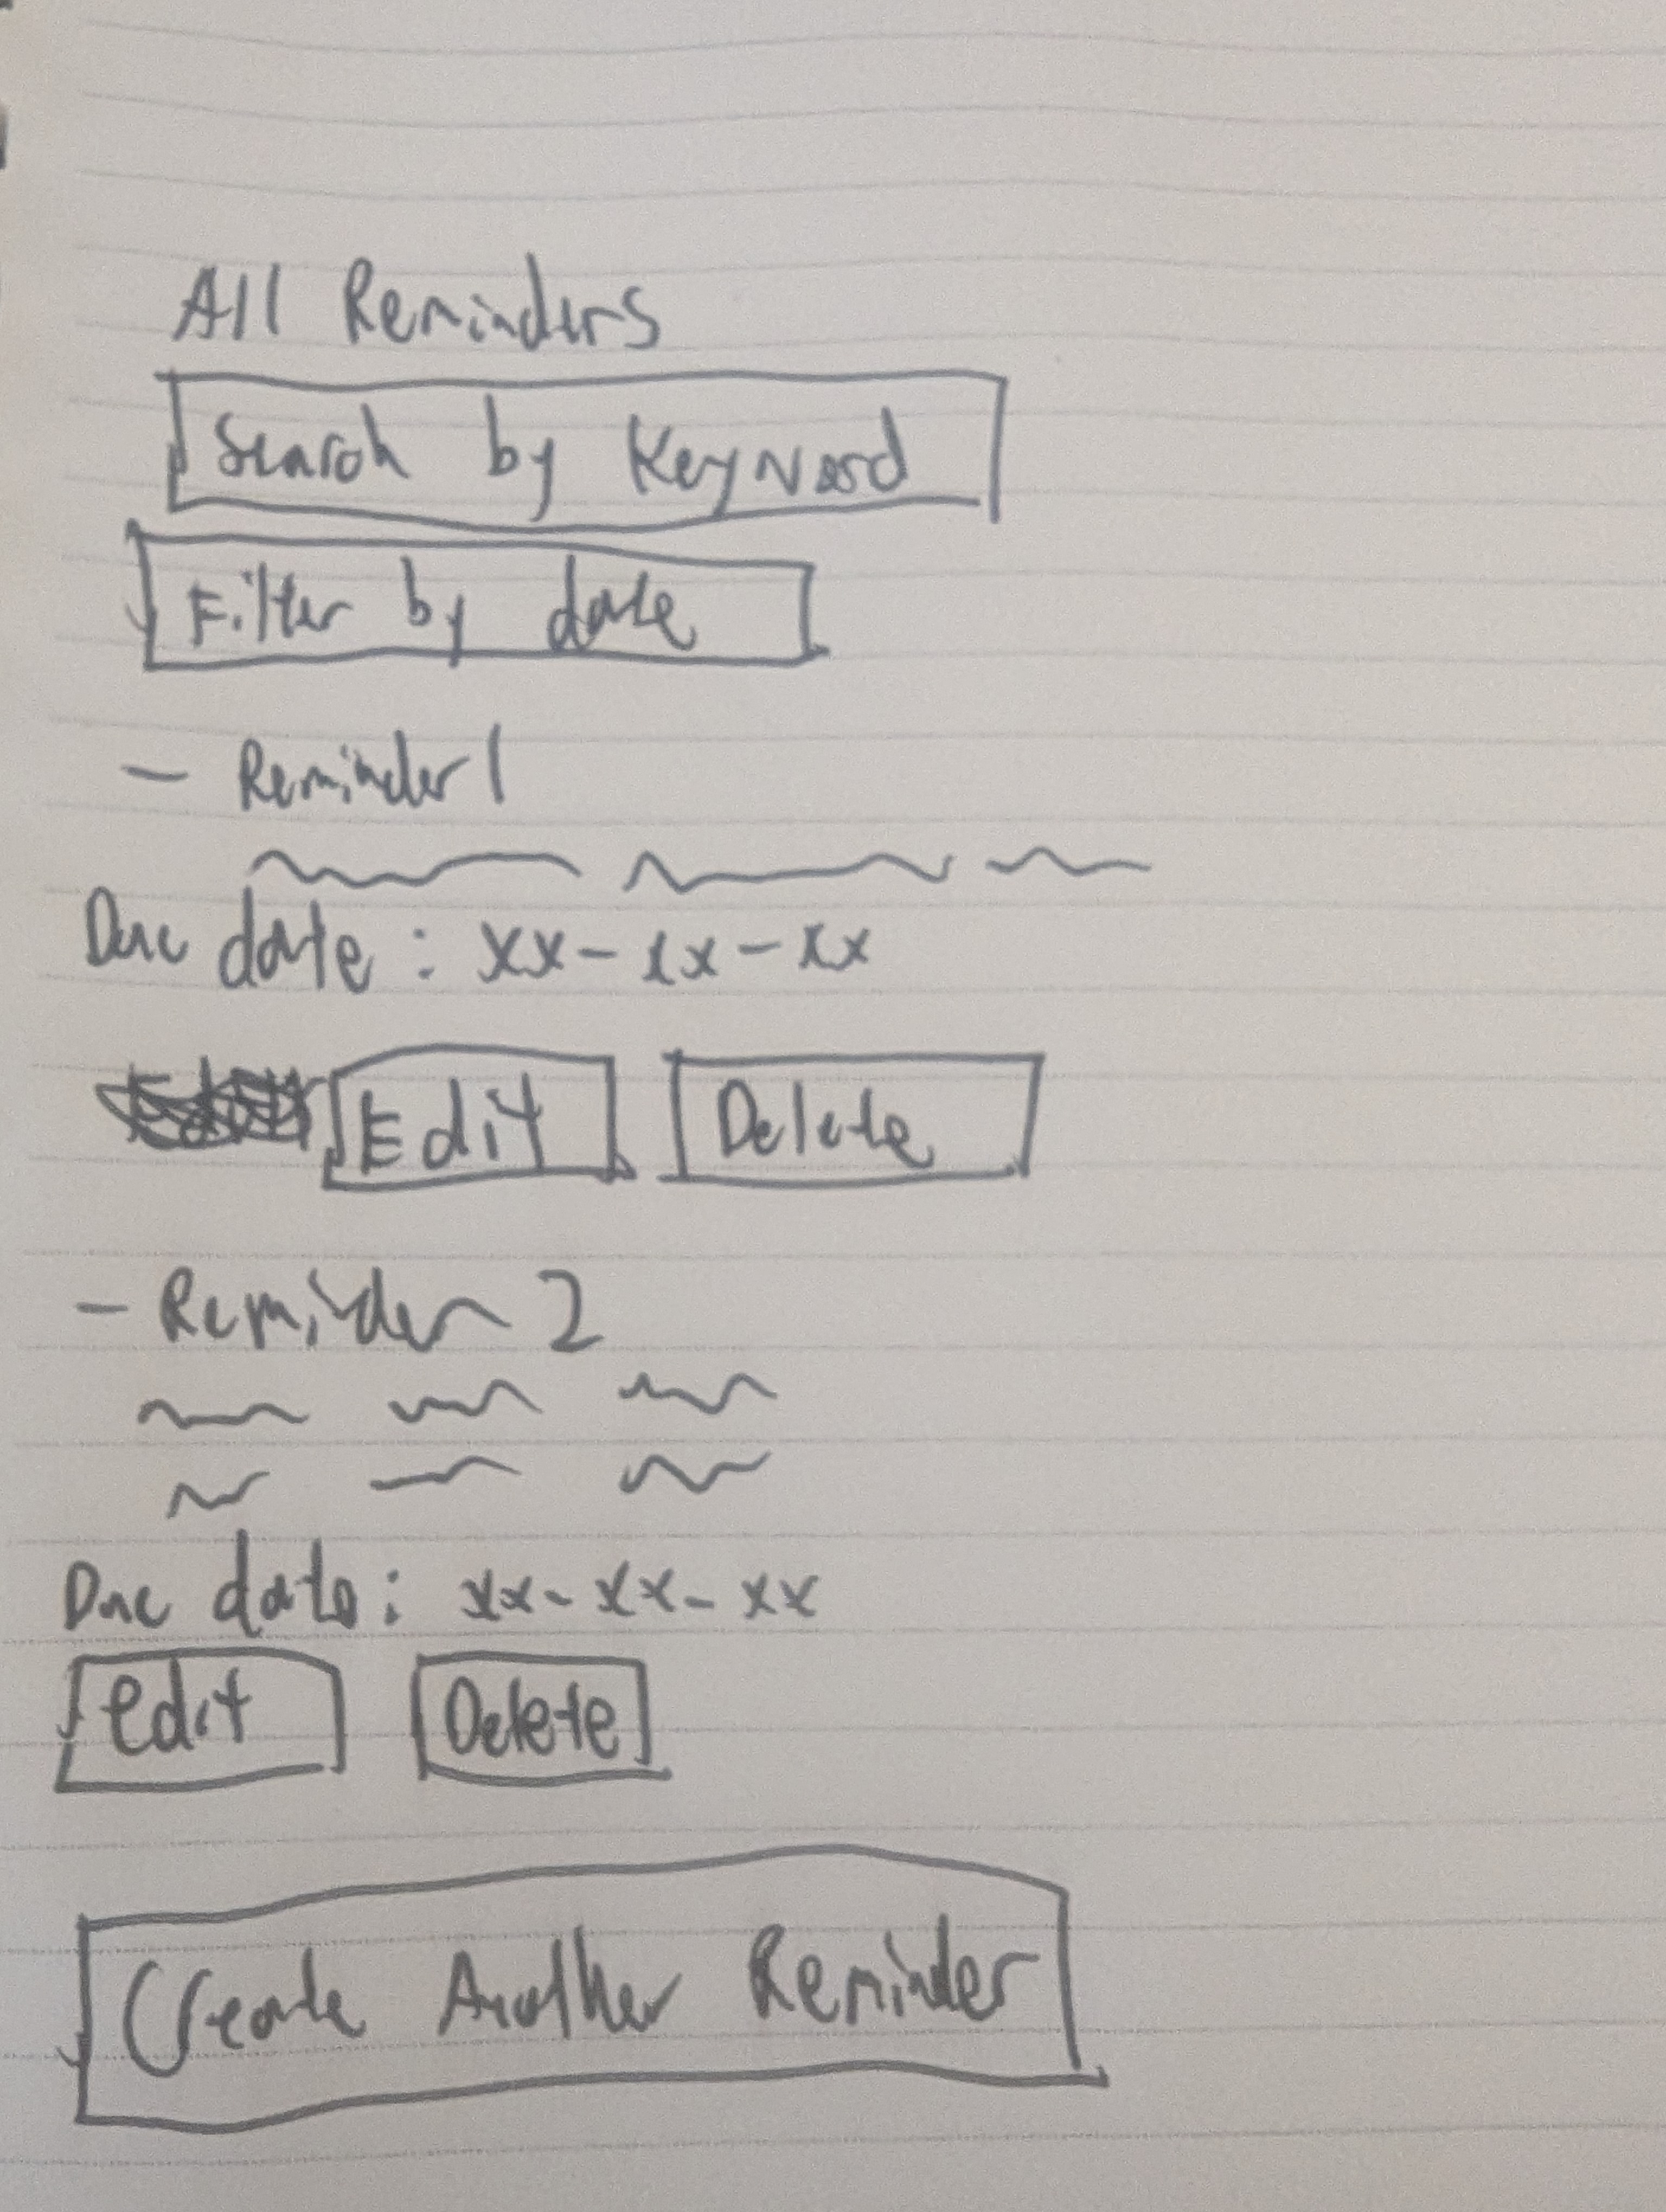 All Reminders
Search by Keyword
Filter by date
- Reminder 1
Due date : xx-xx-xx
Edit Delete
- Reminder 2
Due date: xx-xx-xx
edit Delete
Create Another Reminder